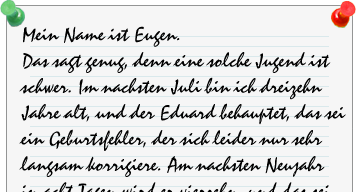 Mein Name ist Eugen.
Das sagt genug, denn eine solche Jugend ist
schwer. Im nachsten Juli bin ich dreizehn
Jahre alt, und der Eduard behauptet, das sei
ein Geburtsfehler, der sich leider nur sehr
langsam korrigiere. Am nachsten Neujahr
in acht Tagen wird er vierzehn, und das sei